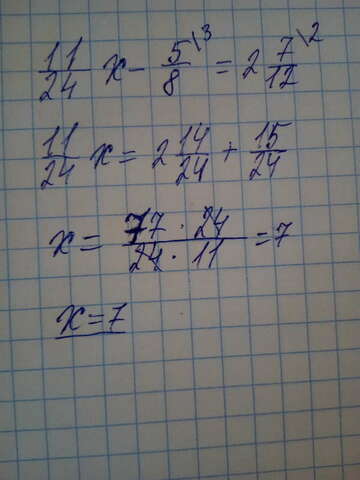 11/24 x - 5/8 \3 = 2 7/12 \2
11/24 x = 2 14/24 + 15/24
x = 77 · 24 / 24 · 11 = 7
x = 7